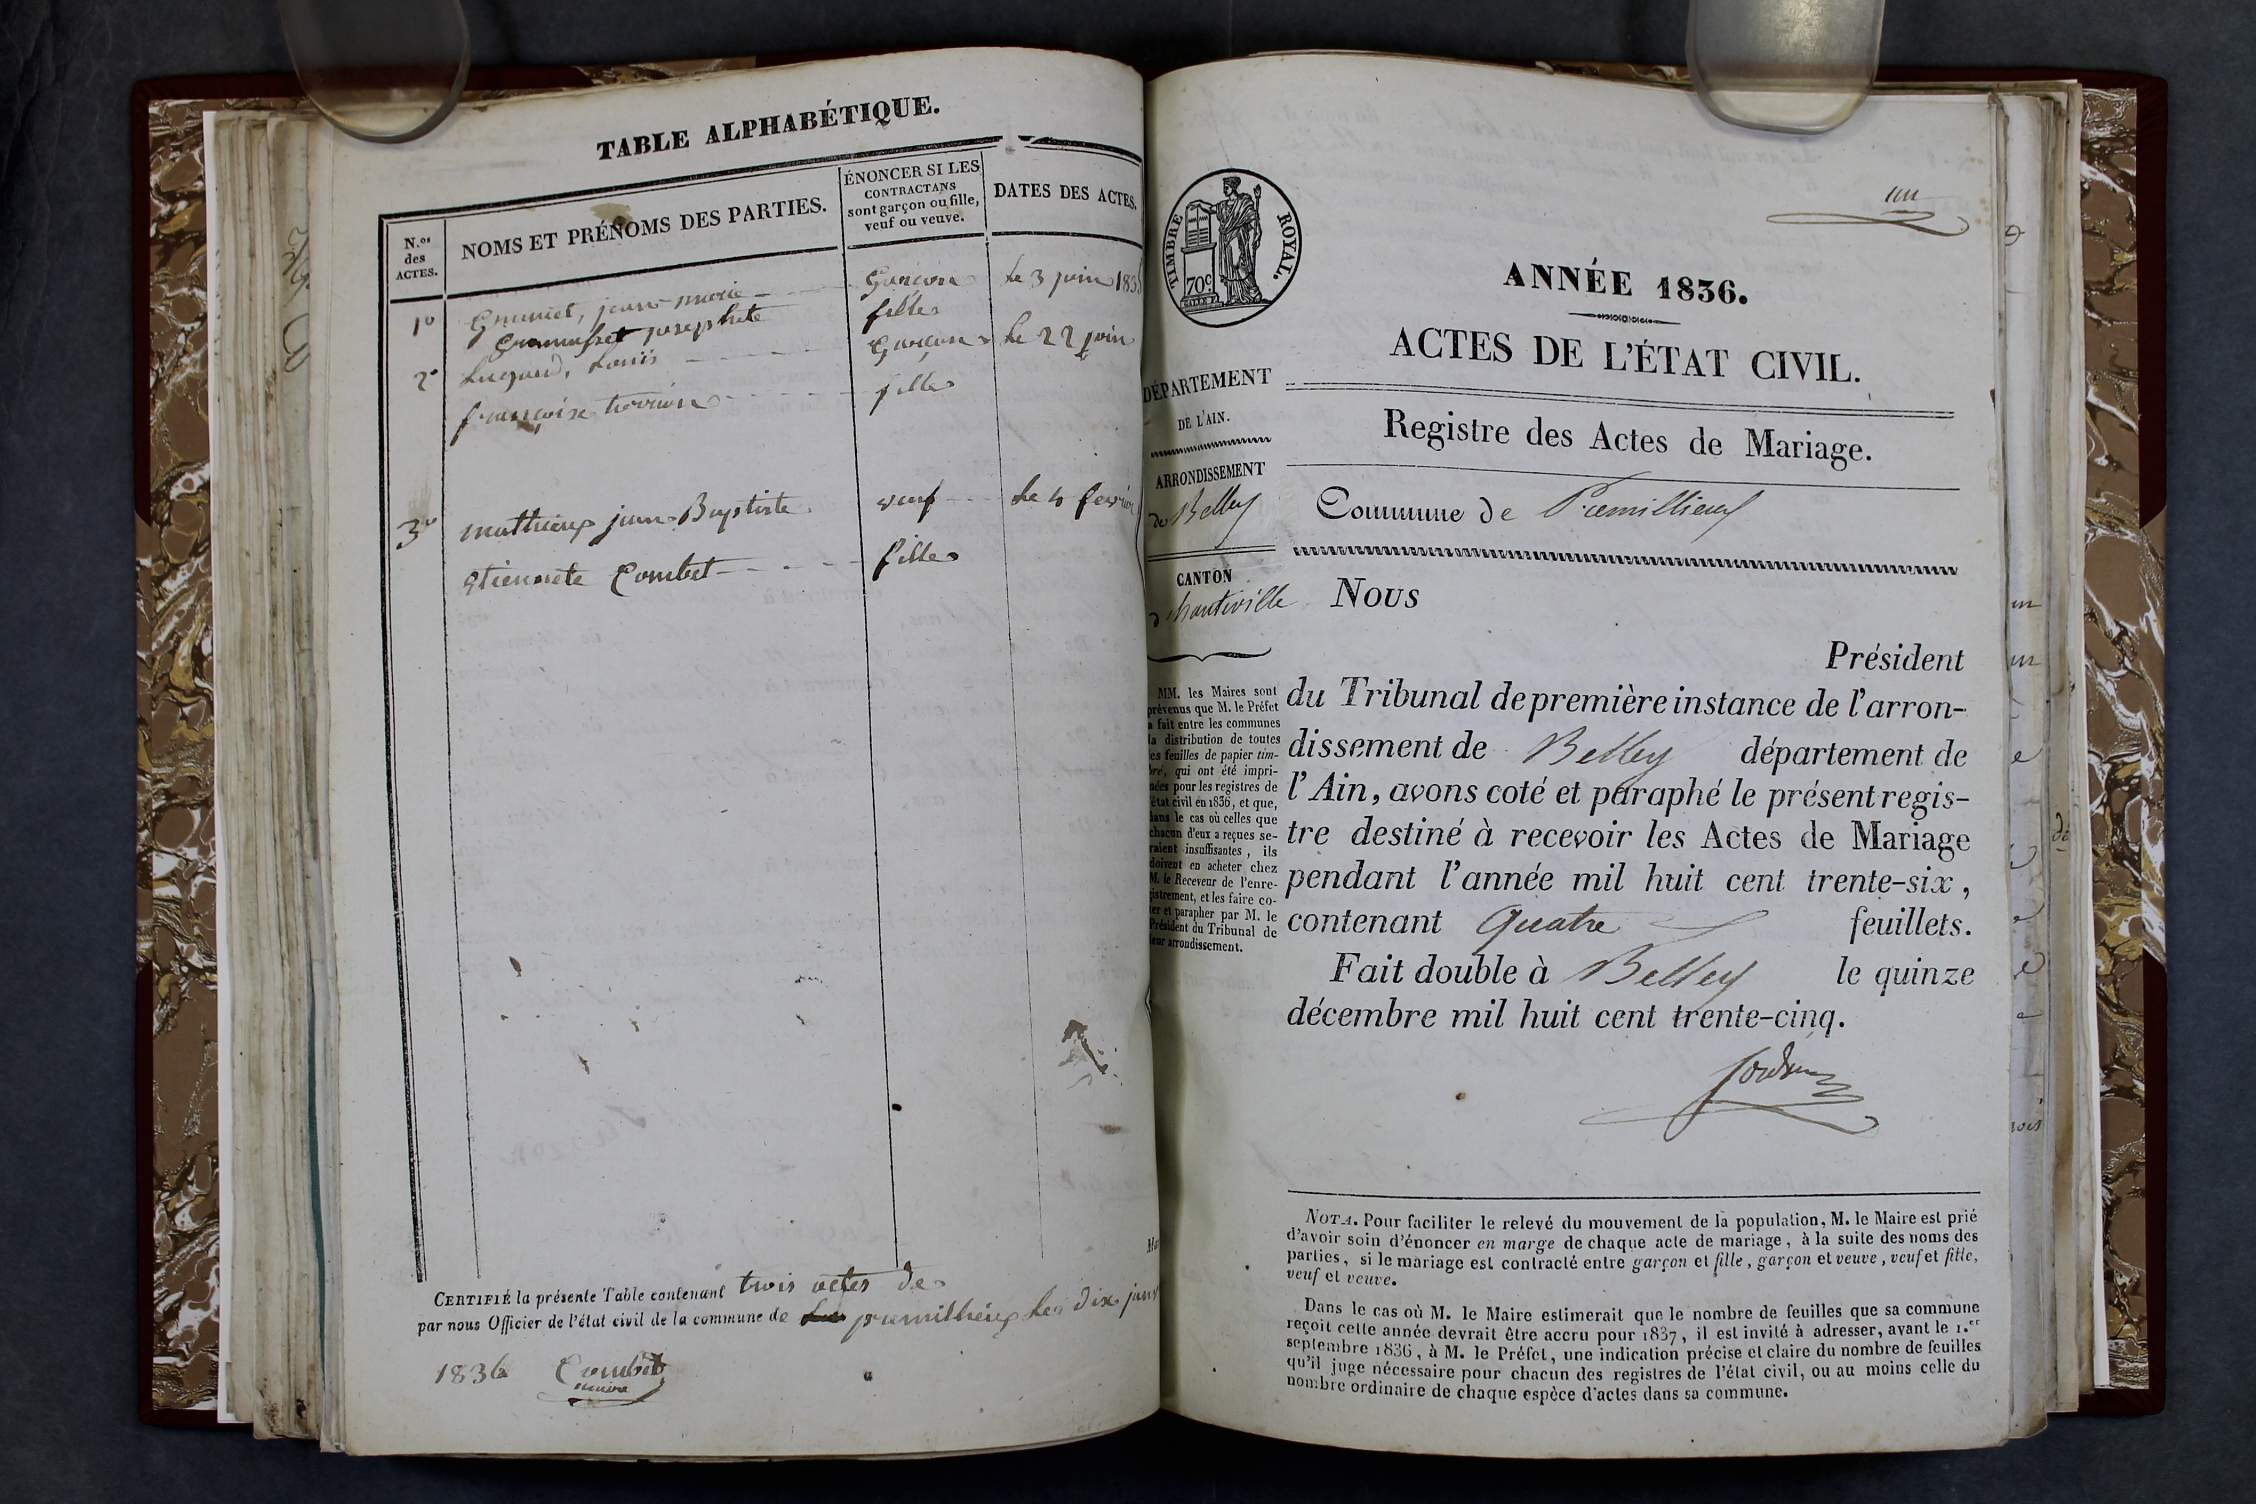 TABLE ALPHABÉTIQUE.
N.os des ACTES.
NOMS ET PRÉNOMS DES PARTIES.
ÉNONCER SI LES
CONTRACTANS
sont garçon ou fille,
veuf ou veuve.
DATES DES ACTES.
1o jean-marie Garçon le 3 juin 183
josephte fille
2o Louis Garçon le 22 juin
françoise fille
3o mathieux jean Baptiste veuf le 4 fevrier
etiennete Combet fille
CERTIFIÉ la présente Table contenant trois actes de
par nous Officier de l'état civil de la commune de premillieux le dix janv
1836 Combet
maire
TIMBRE ROYAL.
70c.
un
ANNÉE 1836.
ACTES DE L'ÉTAT CIVIL.
Registre des Actes de Mariage.
Commune de Premillieux
DÉPARTEMENT
DE L'AIN.
ARRONDISSEMENT
de Belley
CANTON
d hauteville
MM. les Maires sont
prévenus que M. le Préfet
a fait entre les communes
la distribution de toutes
les feuilles de papier tim-
bré, qui ont été impri-
mées pour les registres de
l'état civil en 1836, et que,
dans le cas où celles que
chacun d'eux a reçues se-
raient insuffisantes, ils
doivent en acheter chez
M. le Receveur de l'enre-
gistrement, et les faire co-
ter et parapher par M. le
Président du Tribunal de
leur arrondissement.
Nous
Président
du Tribunal de première instance de l'arron-
dissement de Belley département de
l'Ain, avons coté et paraphé le présent regis-
tre destiné à recevoir les Actes de Mariage
pendant l'année mil huit cent trente-six,
contenant quatre feuillets.
Fait double à Belley le quinze
décembre mil huit cent trente-cinq.
NOTA. Pour faciliter le relevé du mouvement de la population, M. le Maire est prié
d'avoir soin d'énoncer en marge de chaque acte de mariage, à la suite des noms des
parties, si le mariage est contracté entre garçon et fille, garçon et veuve, veuf et fille,
veuf et veuve.
Dans le cas où M. le Maire estimerait que le nombre de feuilles que sa commune
reçoit cette année devrait être accru pour 1837, il est invité à adresser, avant le 1.er
septembre 1836, à M. le Préfet, une indication précise et claire du nombre de feuilles
qu'il juge nécessaire pour chacun des registres de l'état civil, ou au moins celle du
nombre ordinaire de chaque espèce d'actes dans sa commune.